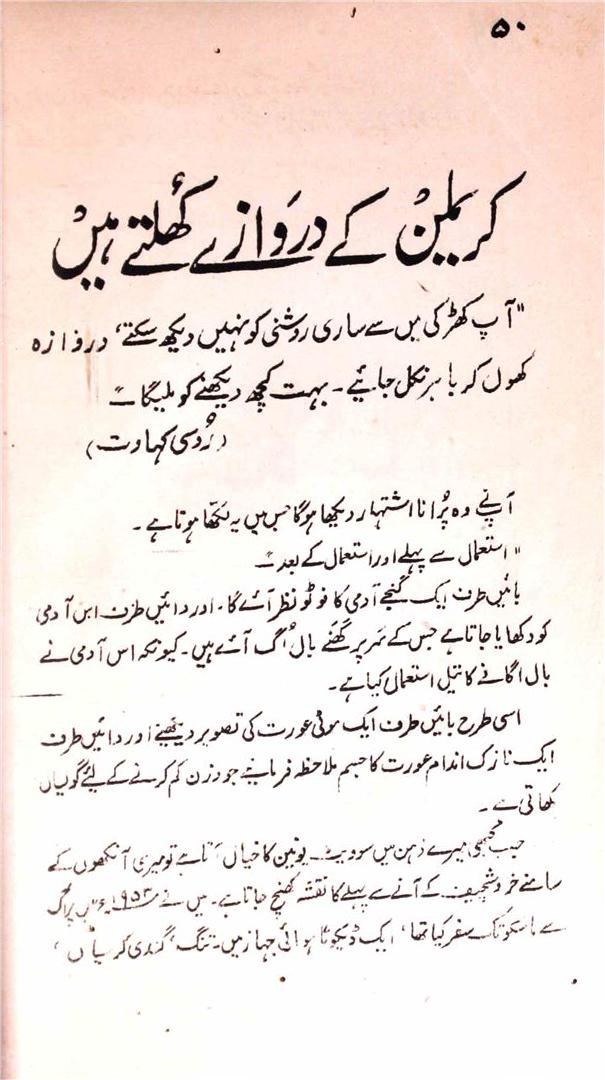 ۵۰
کریملن کے دروازے کھلتے ہیں
"آپ کھڑکی میں سے ساری روشنی کو نہیں دیکھ سکتے، دروازہ
کھول کر باہر نکل جائیے۔ بہت کچھ دیکھنے کو ملیگا"
(رُوسی کہاوت)
آپنے وہ پُرانا اشتہار دیکھا ہوگا جس میں یہ لکھا ہوتا ہے۔
"استعمال سے پہلے اور استعمال کے بعد"
بائیں طرف ایک گنجے آدمی کا فوٹو نظر آئے گا۔ اور دائیں طرف اس آدمی
کو دکھایا جاتا ہے جس کے سر پر گھنے بال اُگ آئے ہیں۔ کیونکہ اس آدمی نے
بال اگانے کا تیل استعمال کیا ہے۔
اسی طرح بائیں طرف ایک موٹی عورت کی تصویر دیکھیئے اور دائیں طرف
ایک نازک اندام عورت کا جسم ملاحظہ فرمایئے جو وزن کم کرنے کے لئے گولیاں
کھاتی ہے۔
جب کبھی میرے ذہن میں سوویٹ یونین کا خیال آتا ہے تو میری آنکھوں کے
سامنے خروشچیف کے آنے سے پہلے کا نقشہ کھنچ جاتا ہے۔ میں نے ۱۹۵۳ء میں پراگ
سے ماسکو تک سفر کیا تھا، ایک ڈیکوٹا ہوائی جہاز میں۔ تنگ، گندی کرسیاں،